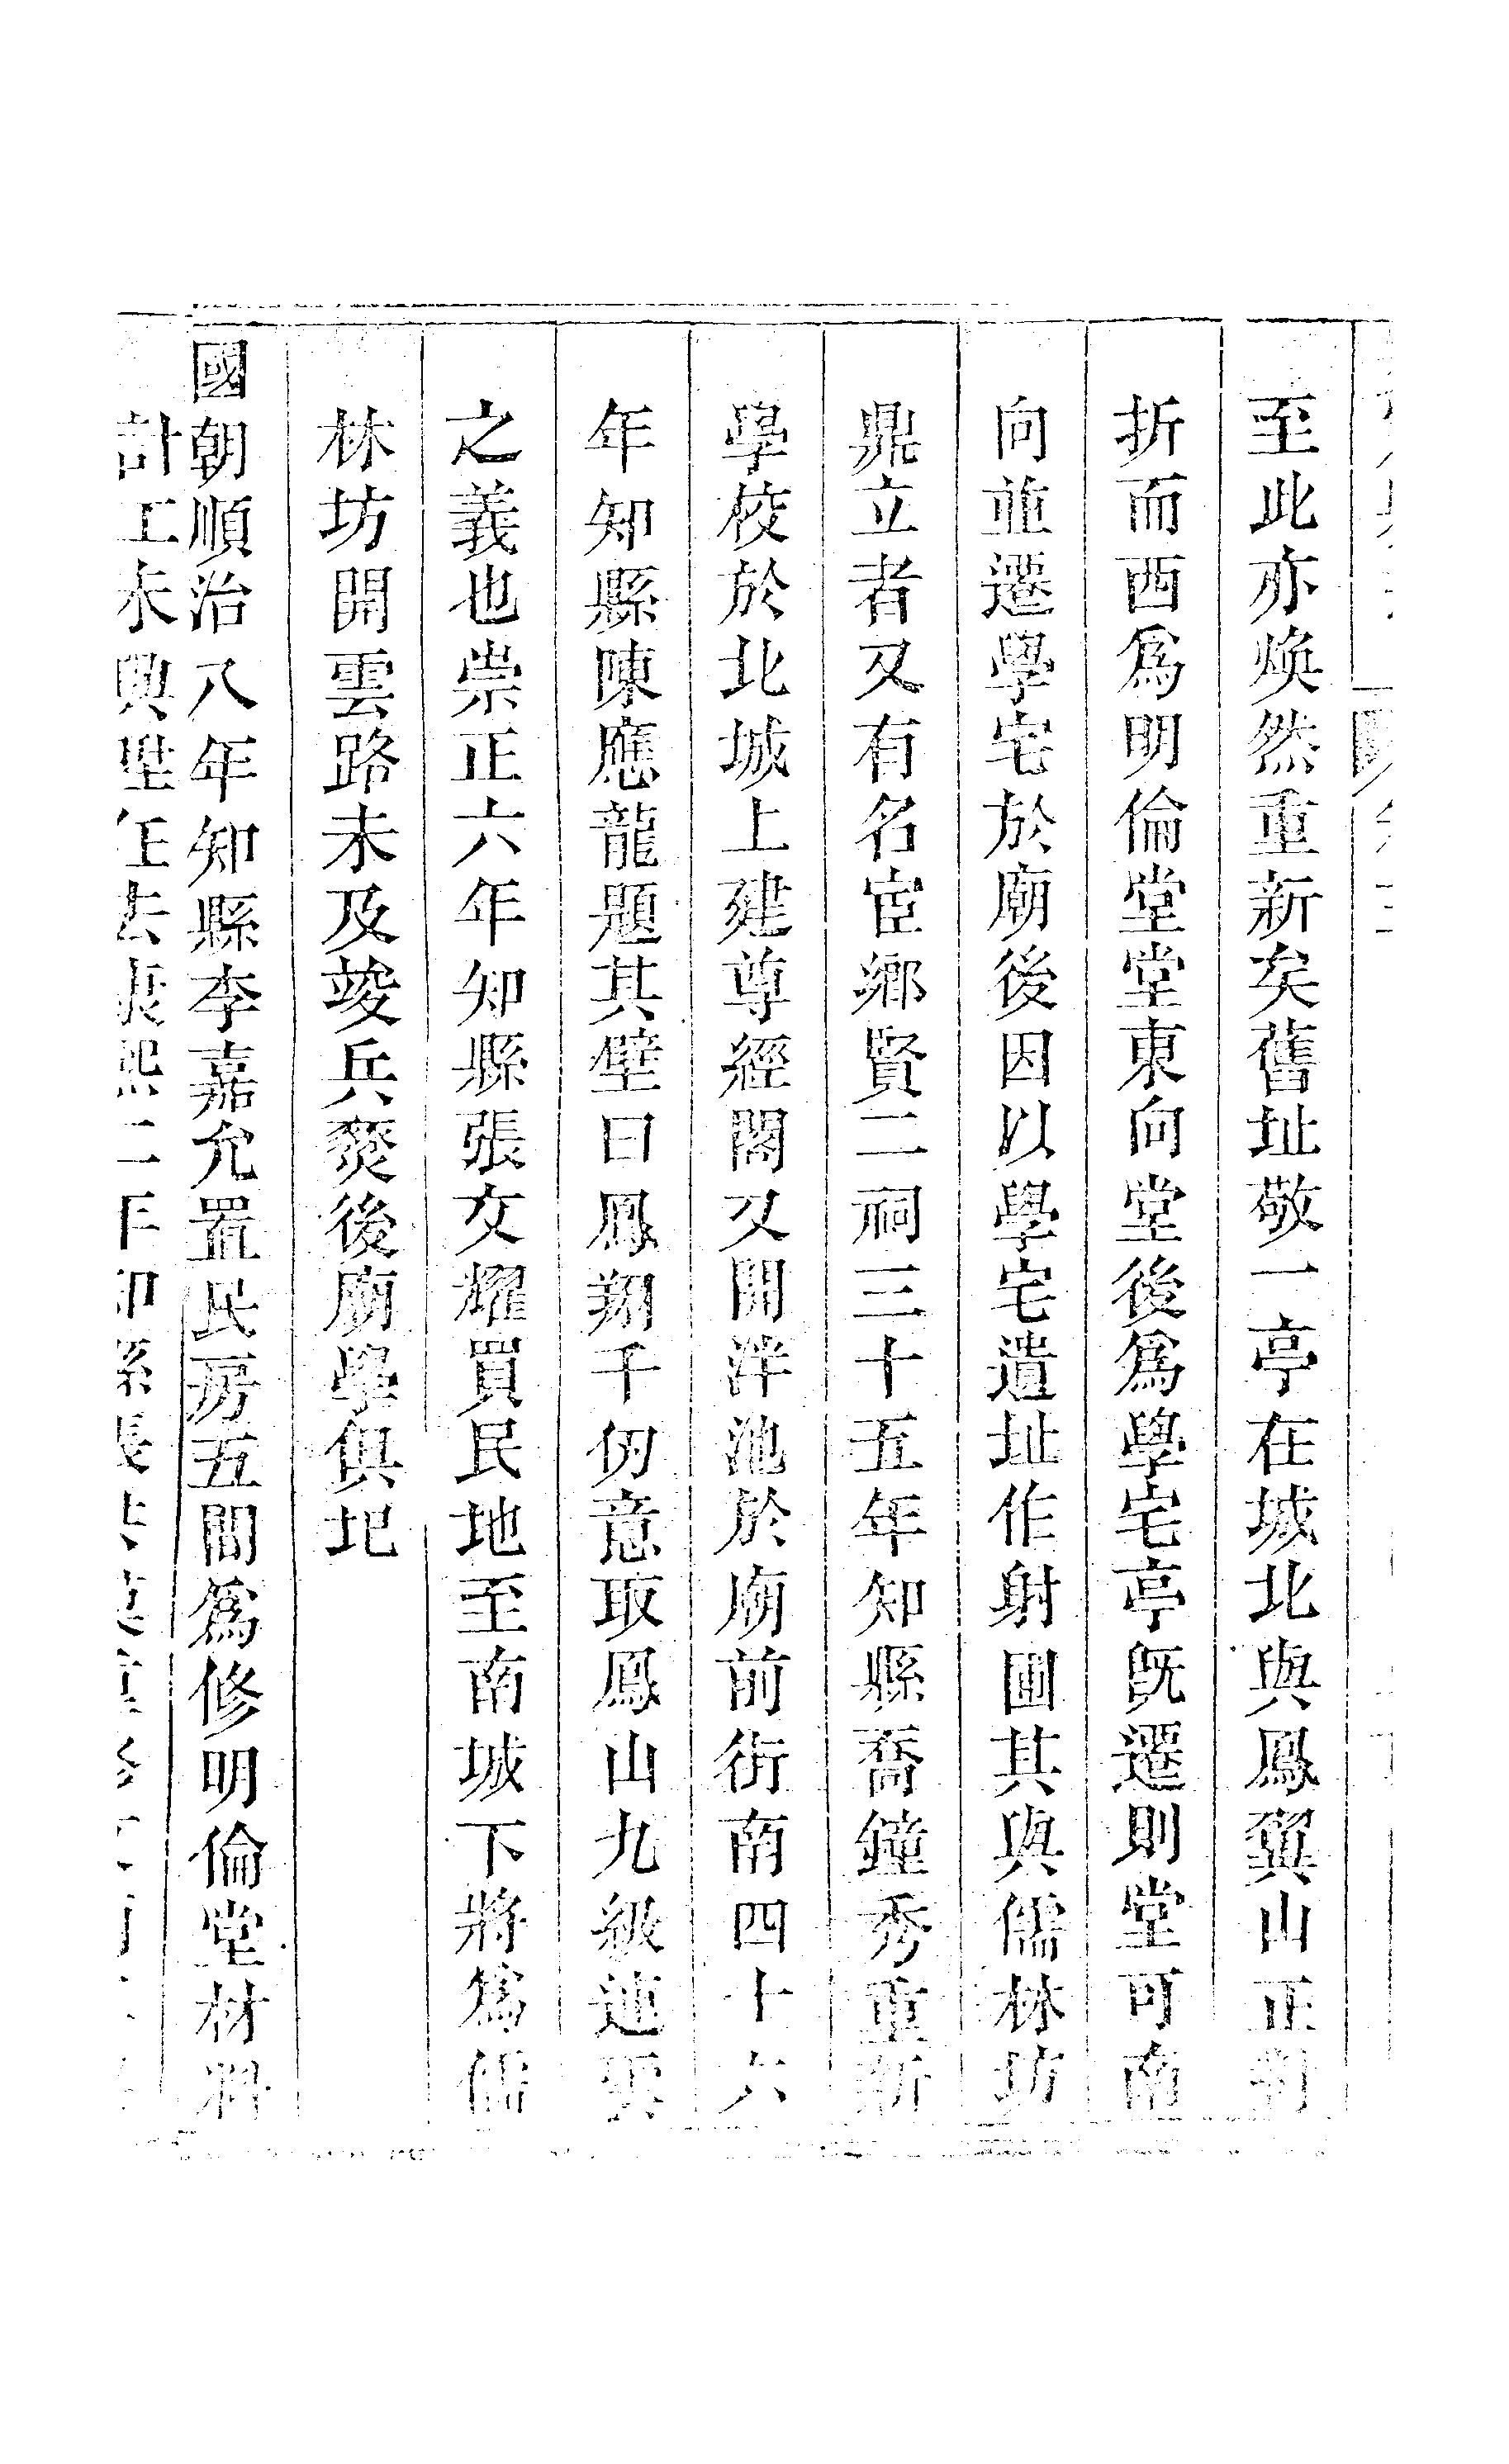 至此亦煥然重新矣舊址敬一亭在城北與鳳翼山正對
折而西爲明倫堂堂東向堂後爲學宅亭旣遷則堂可南
向並遷學宅於廟後因以學宅遺址作射圃其與儒林坊
鼎立者又有名宦鄉賢二祠三十五年知縣喬鐘秀重新
學校於北城上建尊經閣又開泮池於廟前街南四十六
年知縣陳應龍題其壁曰鳳翔千仞意取鳳山九級連雲
之義也崇正六年知縣張文耀買民地至南城下將爲儒
林坊開雲路未及竣兵燹後廟學俱圮
國朝順治八年知縣李嘉允置民房五間爲修明倫堂材料
計工未興陞任去康熙二年知縣張